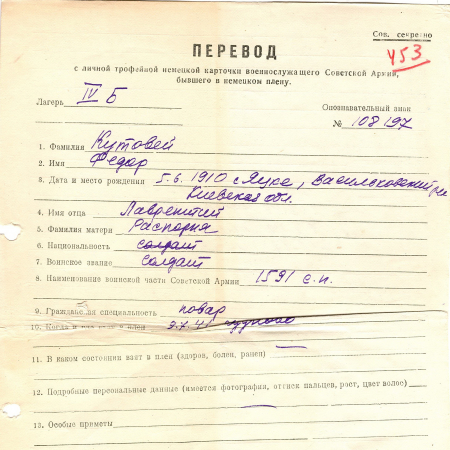 Сов. секретно
453
ПЕРЕВОД
с личной трофейной немецкой карточки военнослужащего Советской Армии,
бывшего в немецком плену.
Лагерь IV Б
Опознавательный знак
№ 108197
1. Фамилия Кутовей
2. Имя Федор
3. Дата и место рождения 5.6.1910 с Яцке, Васильковский
Киевская обл.
4. Имя отца Лаврентий
5. Фамилия матери Распорня
6. Национальность солдат
7. Воинское звание солдат
8. Наименования воинской части Советской Армии 1591 с.п.
9. Гражданская специальность повар
10. Когда и где взят в плен 9.7.41
11. В каком состоянии взят в плен (здоров, болен, ранен) —
12. Подробные персональные данные (имеется фотография, оттиск пальцев, рост, цвет волос)
13. Особые приметы